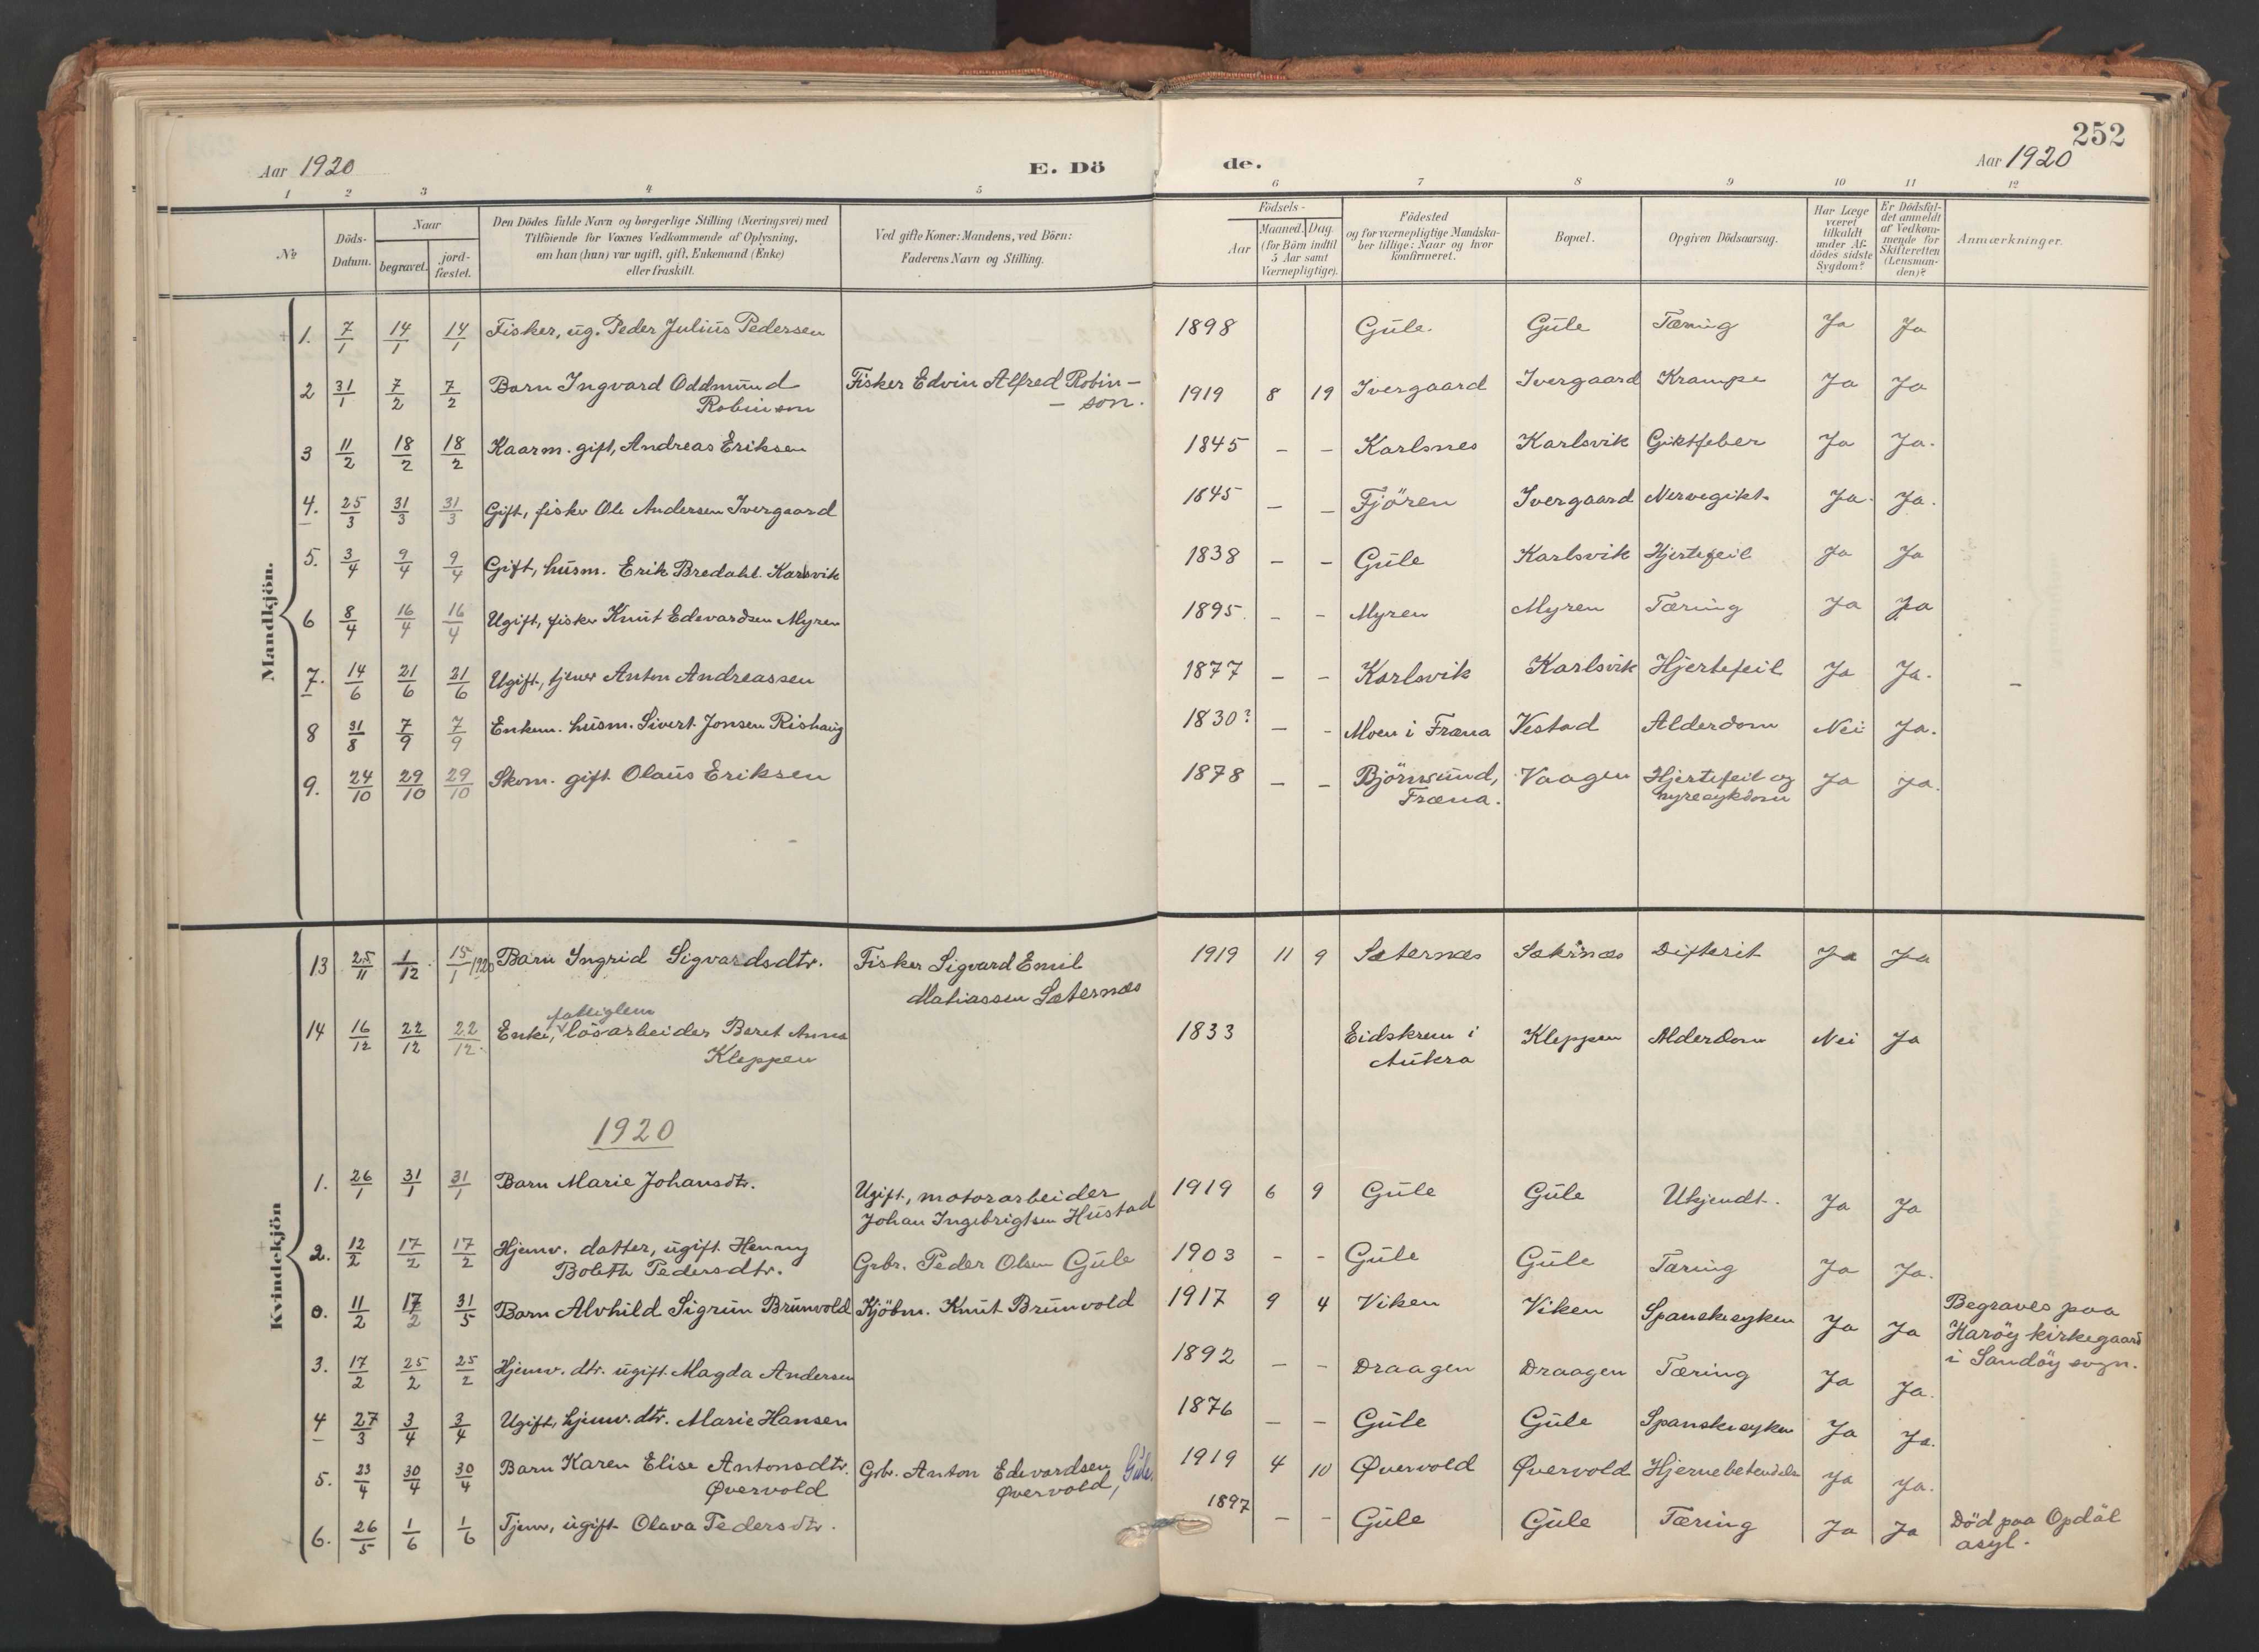 252
Aar 1920 E. Döde. Aar 1920
1 2 3 4 5 6 7 8 9 10 11 12
№
Döds-Datum.
Naar
begravet.
jord-fæstet.
Den Dödes fulde Navn og borgerlige Stilling (Næringsvei) med
Tilföiende for Voxnes Vedkommende af Oplysning,
om han (hun) var ugift, gift, Enkemand (Enke)
eller fraskilt.
Ved gifte Koner: Mandens, ved Börn:
Faderens Navn og Stilling.
Födsels-
Aar
Maaned. Dag.
(for Börn indtil
5 Aar samt
Værnepligtige).
Födested
og for værnepligtige Mandska-
ber tillige: Naar og hvor
konfirmeret.
Bopæl.
Opgiven Dödsaarsag.
Har Læge
været
tilkaldt
under Af-
dödes sidste
Sygdom?
Er Dödsfal-
det anmeldt
af Vedkom-
mende for
Skifteretten
(Lensman-
den)?
Anmærkninger.
Mandkjön.
1. 7/1 14/1 14/1 Fisker, ug. Peder Julius Pedersen 1898 Gule. Gule Tæring Ja Ja
2 31/1 7/2 7/2 Barn Ingvard Oddmund Fisker Edvin Alfred Robin- 1919 8 19 Ivergaard Ivergaard Krampe Ja Ja
Robinson - son.
3 11/2 18/2 18/2 Kaarm. gift, Andreas Eriksen 1845 - - Karlsnes Karlsvik Giktfeber Ja Ja.
4. 25/3 31/3 31/3 Gift, fisker Ole Andersen Ivergaard 1845 - - Fjören Ivergaard Nervegikt. Ja. Ja.
5. 3/4 9/4 9/4 Gift, husm. Erik Bredahl. Karlsvik 1838 - - Gule Karlsvik Hjertefeil Ja Ja
6 8/4 16/4 16/4 Ugift, fisker Knut Edevardsen Myren 1895. - - Myren Myren Tæring Ja Ja
7. 14/6 21/6 21/6 Ugift, tjener Anton Andreassen 1877 - - Karlsvik Karlsvik Hjertefeil Ja Ja. -
8 31/8 7/9 7/9 Enkem. husm. Sivert Jonsen Rishaug 1830? - - Moen i Fræna Vestad Alderdom Nei Ja.
9. 24/10 29/10 29/10 Skom. gift. Olaus Eriksen 1878 - - Björnsund, Vaagen Hjertefeil og Ja Ja.
Fræna. nyresykdom
Kvindekjön
13 25/11 1/12 15/1 1920 Barn Ingrid Sigvardsdtr. Fisker Sigvard Emil 1919 11 9 Sæternæs Sæternæs Difterit Ja Ja
Matiassen Sæternæs
fattiglem
14 16/12 22/12 22/12. Enke, lösarbeider Beret Anna 1833 Eidskrem i Kleppen Alderdom Nei Ja
Kleppen Aukra
1920
1. 26/1 31/1 31/1 Barn Marie Johansdtr. Ugift, motorarbeider 1919 6 9 Gule Gule Ukjendt. Ja Ja
Johan Ingebrigtsen Hustad
2. 12/2 17/2 17/2 Hjemv. datter, ugift Henny Grbr. Peder Olsen Gule 1903 - - Gule Gule Tæring Ja Ja.
Boleth Pedersdtr.
0. 11/2 17/2 31/5 Barn Alvhild Sigrun Brunvold Kjöbm. Knut Brunvold 1917 9 4 Viken Viken Spanskesyken Ja Ja Begraves paa
Harøy kirkegaard
i Sandöy sogn.
3. 17/2 25/2 25/2 Hjemv. dtr. ugift. Magda Andersen 1892 - - Draagen Draagen Tæring Ja Ja.
4 27/3 3/4 3/4 Ugift, hjemv. dtr. Marie Hansen 1876 - - Gule Gule Spanskesyken Ja Ja.
5. 23/4 30/4 30/4 Barn Karen Elise Antonsdtr. Grbr. Anton Edevardsen 1919 4 10 Øvervold Øvervold Hjernebetendelse Ja Ja.
Øvervold Øvervold, Gule.
6. 26/5 1/6 1/6 Tjen., ugift Olava Pedersdtr. 1897 - - Gule Gule Tæring Ja Ja Död paa Opdöl
asyl.